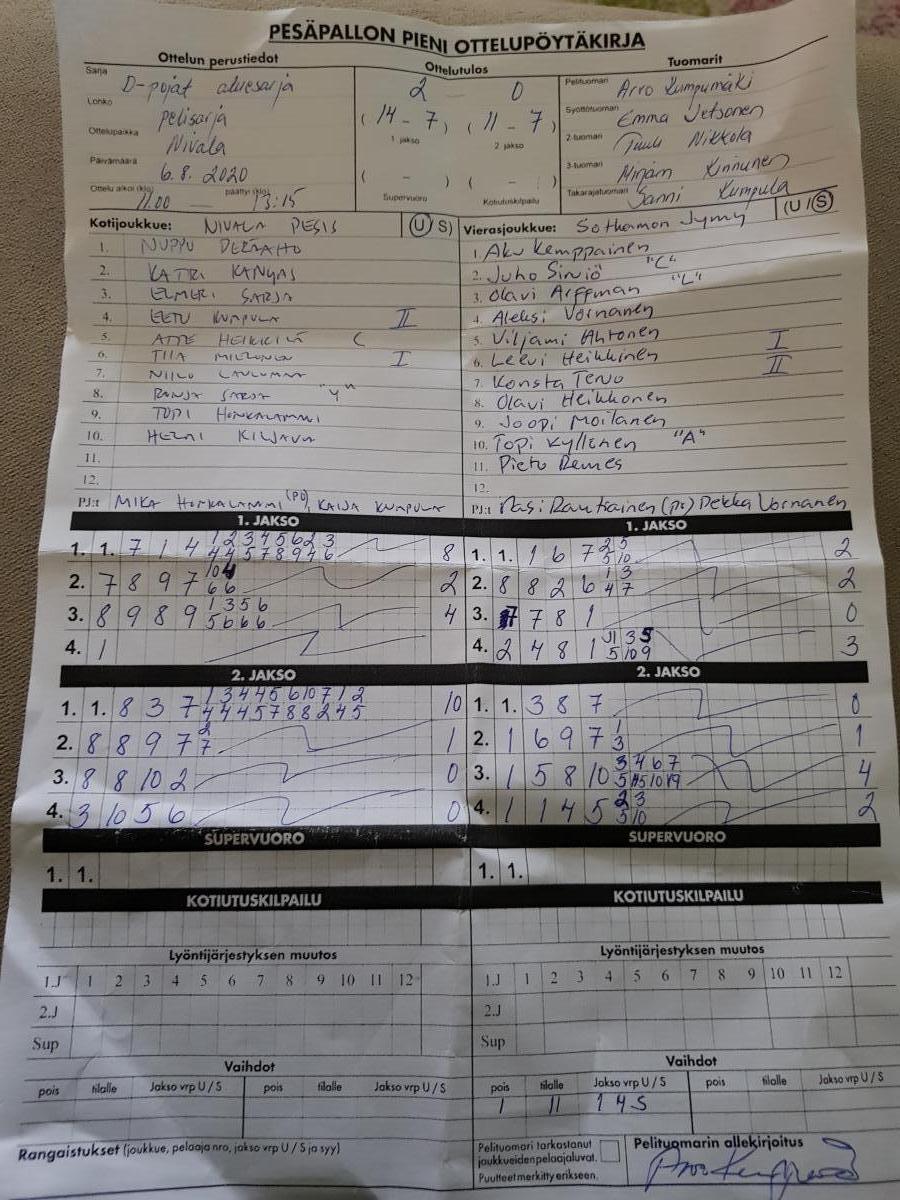 PESÄPALLON PIENI OTTELUPÖYTÄKIRJA
Ottelun perustiedot
Sarja D-pojat aluesarja
Lohko pelisarja
Ottelupaikka Nivala
Päivämäärä 6.8.2020
Ottelu alkoi (klo) 11.00 — päättyi (klo) 13:15
Ottelutulos
2 - 0
( 14 - 7 ) ( 11 - 7 )
1 jakso 2. jakso
( - ) ( - )
Supervuoro Kotiutuskilpailu
Tuomarit
Pelituomari Arvo Kumpumäki
Syöttötuomari Emma Jetsonen
2-tuomari Tuuli Nikkola
3-tuomari Mirjam Kinnunen
Takarajatuomari Sanni Kumpula
Kotijoukkue: NIVALA PESIS (U/S)
1. NUPPU
2. KATRI KANGAS
3. ELMERI SARJA
4. EETU KUMPULA II
5. ATTE HEIKKILÄ C
6. TIIA I
7. NIILO
8. RONJA SARJA "Y"
9. TOPI HONKALAMMI
10. HELMI KILJALA
11.
12.
PJ:t MIKA HONKALAMMI (PJ), KAIJA KUMPULA
Vierasjoukkue: Sotkamon Jymy (U/S)
1. Aku Kemppainen
2. Juho Sirviö "C"
3. Olavi Arffman "L"
4. Aleksi Vornanen
5. Viljami Ahtonen I
6. Leevi Heikkinen II
7. Konsta Tervo
8. Olavi Heikkonen
9. Joopi Moilanen
10. Topi Kyllönen "A"
11. Pietu Remes
12.
PJ:t Pasi Rautiainen (pj) Pekka Vornanen
1. JAKSO
1. 1. 7 1 4 1 2 3 4 5 6 2 3 8
4 4 5 7 8 9 4 6
2. 7 8 9 7 10 4 2
6 6
3. 8 9 8 9 1 3 5 6 4
5 6 6 6
4. 1
1. JAKSO
1. 1. 1 6 7 2 5 2
5 10
2. 8 8 2 6 1 3 2
4 7
3. 7 8 1 0
4. 2 4 8 1 11 3 5 3
5 10 9
2. JAKSO
1. 1. 8 3 7 1 3 4 4 5 6 10 7 1 2 10
4 4 4 5 7 8 8 2 4 5
2. 8 8 9 7 2 1
7
3. 8 8 10 2 0
4. 3 10 5 6 0
2. JAKSO
1. 1. 3 8 7 0
2. 1 6 9 7 1 1
3
3. 1 5 8 10 3 4 6 7 4
4. 1 1 4 5 2 3 2
5 10
SUPERVUORO
1. 1.
SUPERVUORO
1. 1.
KOTIUTUSKILPAILU
KOTIUTUSKILPAILU
Lyöntijärjestyksen muutos
1.J 1 2 3 4 5 6 7 8 9 10 11 12
2.J
Sup
Lyöntijärjestyksen muutos
1.J 1 2 3 4 5 6 7 8 9 10 11 12
2.J
Sup
Vaihdot
pois tilalle Jakso vrp U / S pois tilalle Jakso vrp U / S
Vaihdot
pois tilalle Jakso vrp U / S pois tilalle Jakso vrp U / S
1 11 1 4 S
Rangaistukset (joukkue, pelaaja nro, jakso vrp U / S ja syy)
Pelituomari tarkastanut
joukkueiden pelaajaluvat.
Puutteet merkitty erikseen.
Pelituomarin allekirjoitus